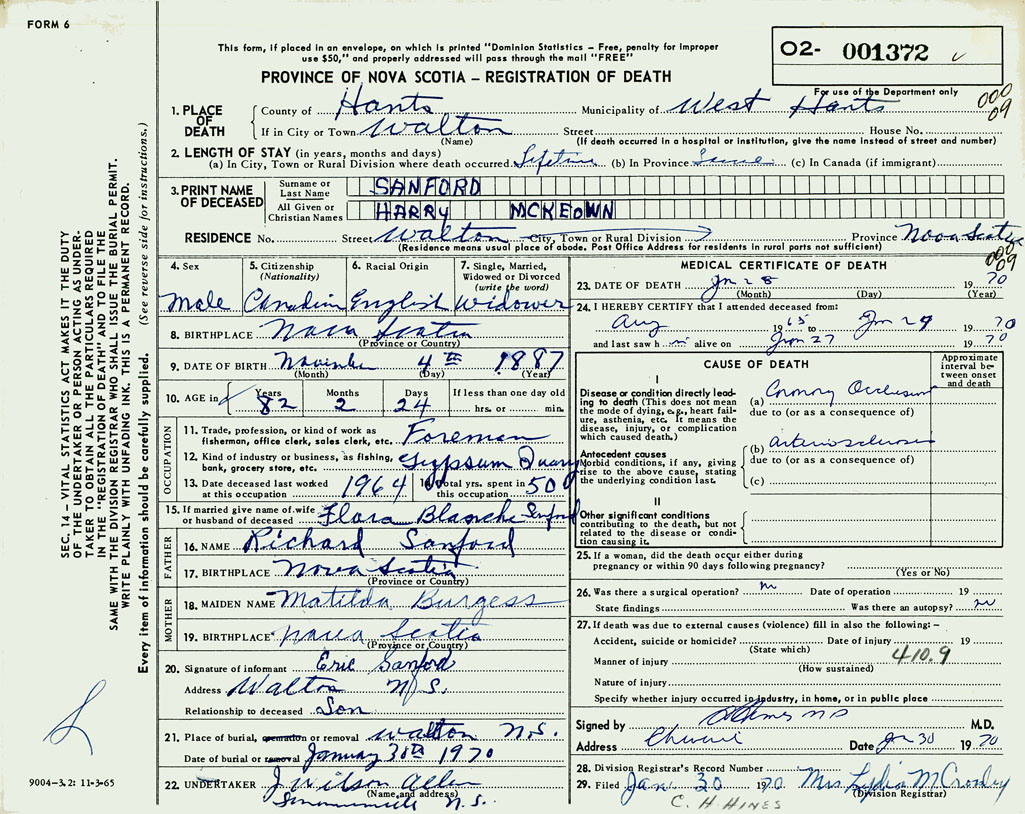 FORM 6
This form, if placed in an envelope, on which is printed "Dominion Statistics – Free, penalty for improper
use $50," and properly addressed will pass through the mail "FREE"
PROVINCE OF NOVA SCOTIA – REGISTRATION OF DEATH
02- 001372
For use of the Department only
000
09
1. PLACE OF DEATH
County of Hants Municipality of West Hants
If in City or Town Walton Street House No.
(Name) (If death occurred in a hospital or institution, give the name instead of street and number)
2. LENGTH OF STAY (in years, months and days)
(a) In City, Town or Rural Division where death occurred Lifetime (b) In Province Same (c) In Canada (if immigrant)
3. PRINT NAME OF DECEASED
Surname or Last Name SANFORD
All Given or Christian Names HARRY MCKEOWN
RESIDENCE No. Street Walton City, Town or Rural Division Province Nova Scotia
(Residence means usual place of abode. Post Office Address for residents in rural parts not sufficient)
000
09
4. Sex Male
5. Citizenship (Nationality) Canadian
6. Racial Origin English
7. Single, Married, Widowed or Divorced (write the word) Widower
8. BIRTHPLACE Nova Scotia
(Province or Country)
9. DATE OF BIRTH November 4th 1887
(Month) (Day) (Year)
10. AGE in Years 82 Months 2 Days 24 If less than one day old hrs. or min.
OCCUPATION
11. Trade, profession, or kind of work as fisherman, office clerk, sales clerk, etc. Foreman
12. Kind of industry or business, as fishing, bank, grocery store, etc. Gypsum Quarry
13. Date deceased last worked at this occupation 1964
Total yrs. spent in this occupation 50
15. If married give name of wife or husband of deceased Flora Blanche Sanford
FATHER
16. NAME Richard Sanford
17. BIRTHPLACE Nova Scotia
(Province or Country)
MOTHER
18. MAIDEN NAME Matilda Burgess
19. BIRTHPLACE Nova Scotia
(Province or Country)
20. Signature of informant Eric Sanford
Address Walton N.S.
Relationship to deceased Son
21. Place of burial, cremation or removal Walton N.S.
Date of burial or removal January 30th 1970
22. UNDERTAKER J Wilson Allen
(Name and address)
N.S.
MEDICAL CERTIFICATE OF DEATH
23. DATE OF DEATH Jan 28 1970
(Month) (Day) (Year)
24. I HEREBY CERTIFY that I attended deceased from:
Aug 1965 to Jan 29 1970
and last saw h m alive on Jan 27 1970
CAUSE OF DEATH
Approximate interval between onset and death
I
Disease or condition directly leading to death (This does not mean the mode of dying, e.g., heart failure, asthenia, etc. it means the disease, injury, or complication which caused death.)
(a) Coronary Occlusion
due to (or as a consequence of)
Antecedent causes
Morbid conditions, if any, giving rise to the above cause, stating the underlying condition last.
(b) arteriosclerosis
due to (or as a consequence of)
(c)
II
Other significant conditions
contributing to the death, but not related to the disease or condition causing it.
25. If a woman, did the death occur either during
pregnancy or within 90 days following pregnancy?
(Yes or No)
26. Was there a surgical operation? no Date of operation 19
State findings Was there an autopsy? no
27. If death was due to external causes (violence) fill in also the following: –
Accident, suicide or homicide? Date of injury 19
(State which)
Manner of injury 410.9
(How sustained)
Nature of injury
Specify whether injury occurred in industry, in home, or in public place
Signed by M.D.
Address Date Jan 30 1970
28. Division Registrar's Record Number
29. Filed Jan 30 1970 Mrs Lydia McCroskey
(Division Registrar)
C. H HINES
SEC. 14 – VITAL STATISTICS ACT MAKES IT THE DUTY
OF THE UNDERTAKER OR PERSON ACTING AS UNDER-
TAKER TO OBTAIN ALL THE PARTICULARS REQUIRED
IN THE "REGISTRATION OF DEATH" AND TO FILE THE
SAME WITH THE DIVISION REGISTRAR WHO SHALL ISSUE THE BURIAL PERMIT.
WRITE PLAINLY WITH UNFADING INK. THIS IS A PERMANENT RECORD.
Every item of information should be carefully supplied. (See reverse side for instructions.)
9004-3.2: 11-3-65